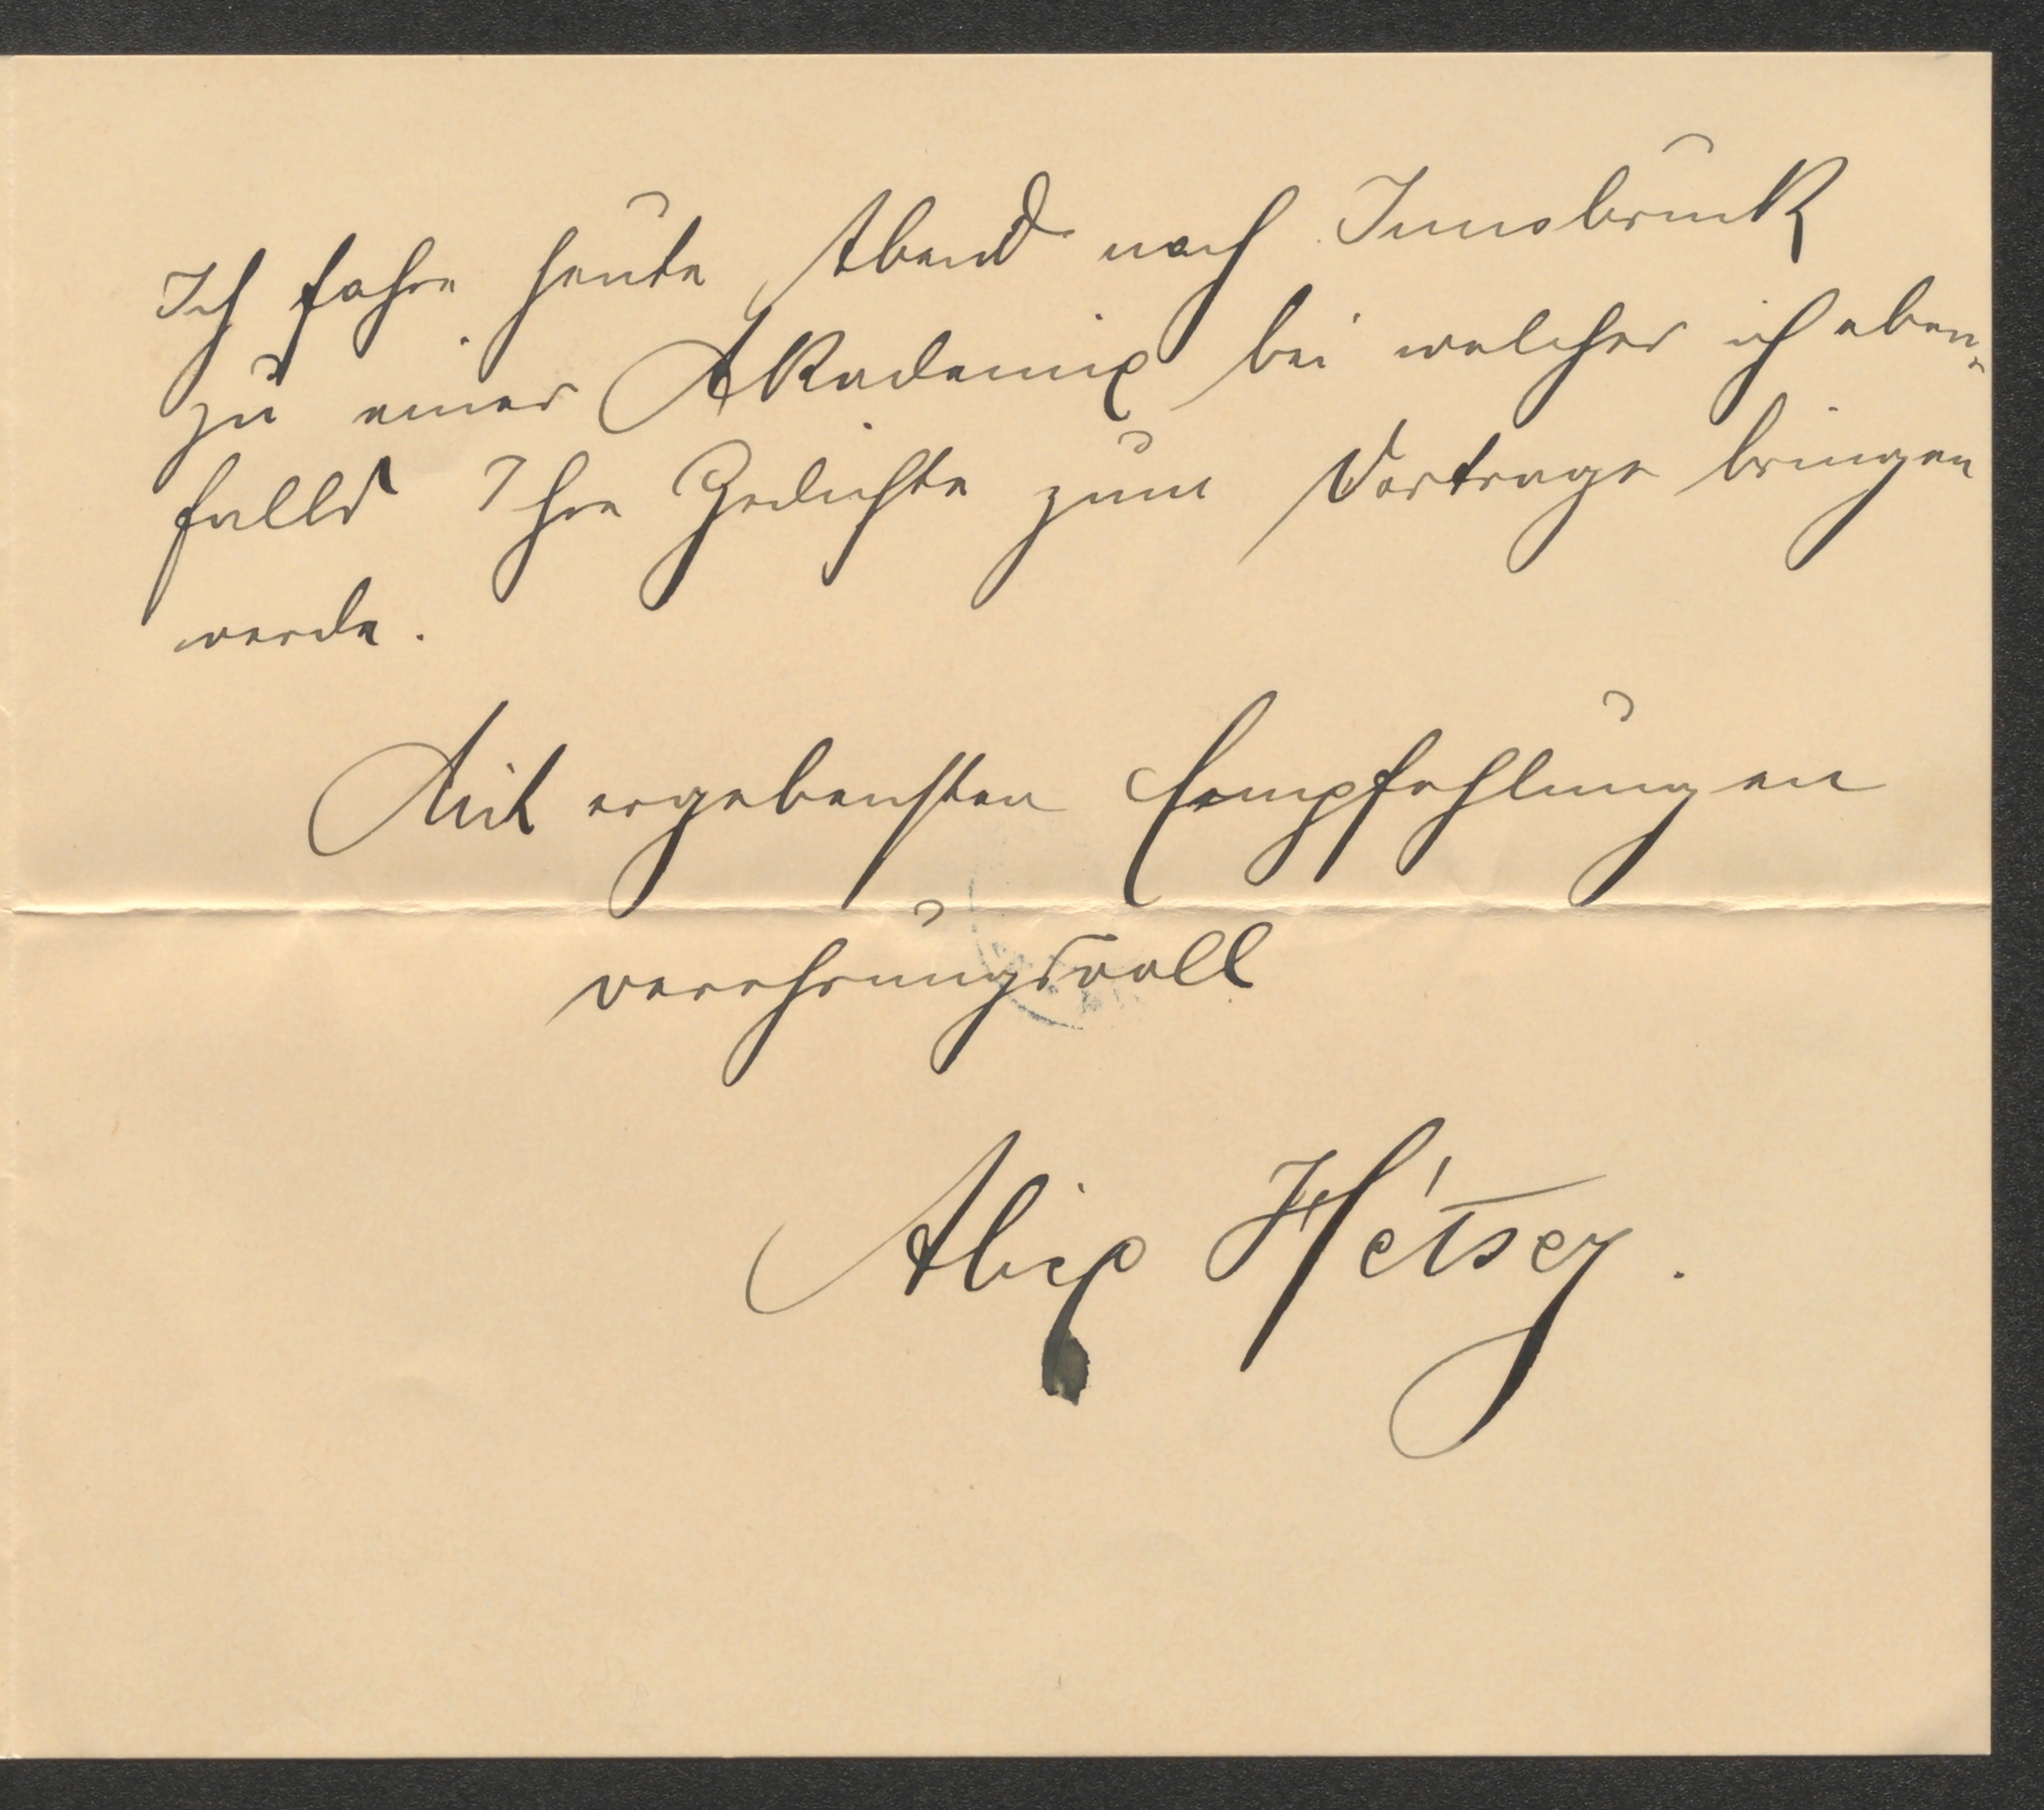 Ich fahre heute Abend nach Innsbruck
zu einer Akademie bei welcher ich eben-
falls Ihre Gedichte zum Vortrage bringen
werde.
Mit ergebensten Empfehlungen
verehrungsvoll
Alice Hétsey.